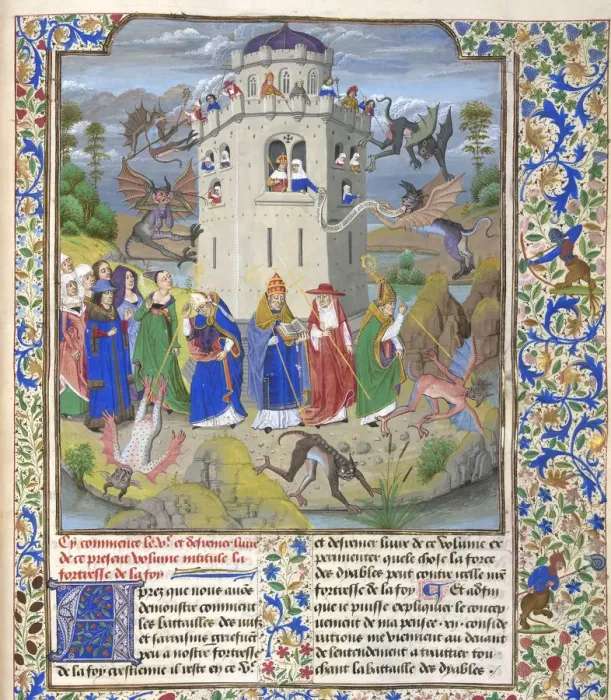 Cy commence le .v.e et desrenier liure
de ce present volume intitule la
fortresse de la foy
Apres que nous auõs
demonstre comment
les battailles des iuifz
et sarrasins griefuent
peu a nostre fortresse
de la foy crestienne il reste en ce .v.e
et desrenier liure de ce volume ex
perimenter quele chose la force
des dyables peut contre icelle nr̃e
fortresse de la foy Et adfin
que ie puisse expliquer le concep
uement de ma pensee .xij. conside
rations me viennent au deuant
de lentendement a traittier tou
chant la battaille des dyables